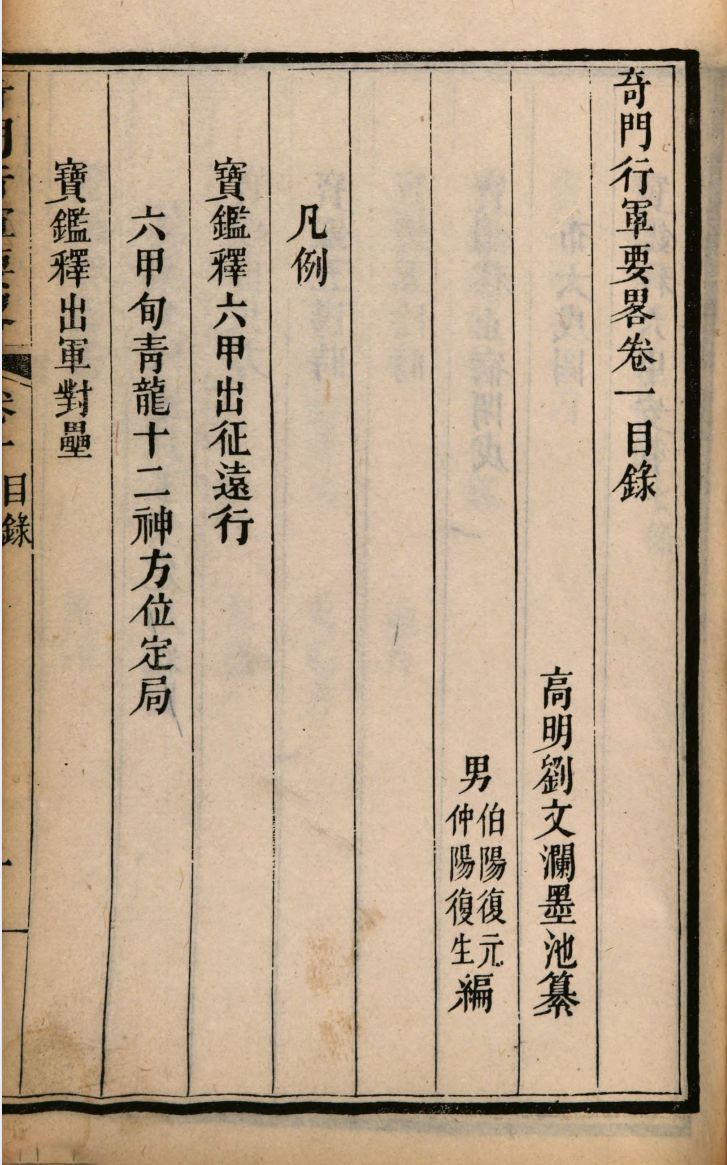 奇門行軍要畧卷一目錄
高明劉文瀾墨池纂
男伯陽復元仲陽復生編
凡例
寶鑑釋六甲出征遠行
六甲旬青龍十二神方位定局
寶鑑釋出軍對壘
奇門行軍要畧 卷一目錄 一